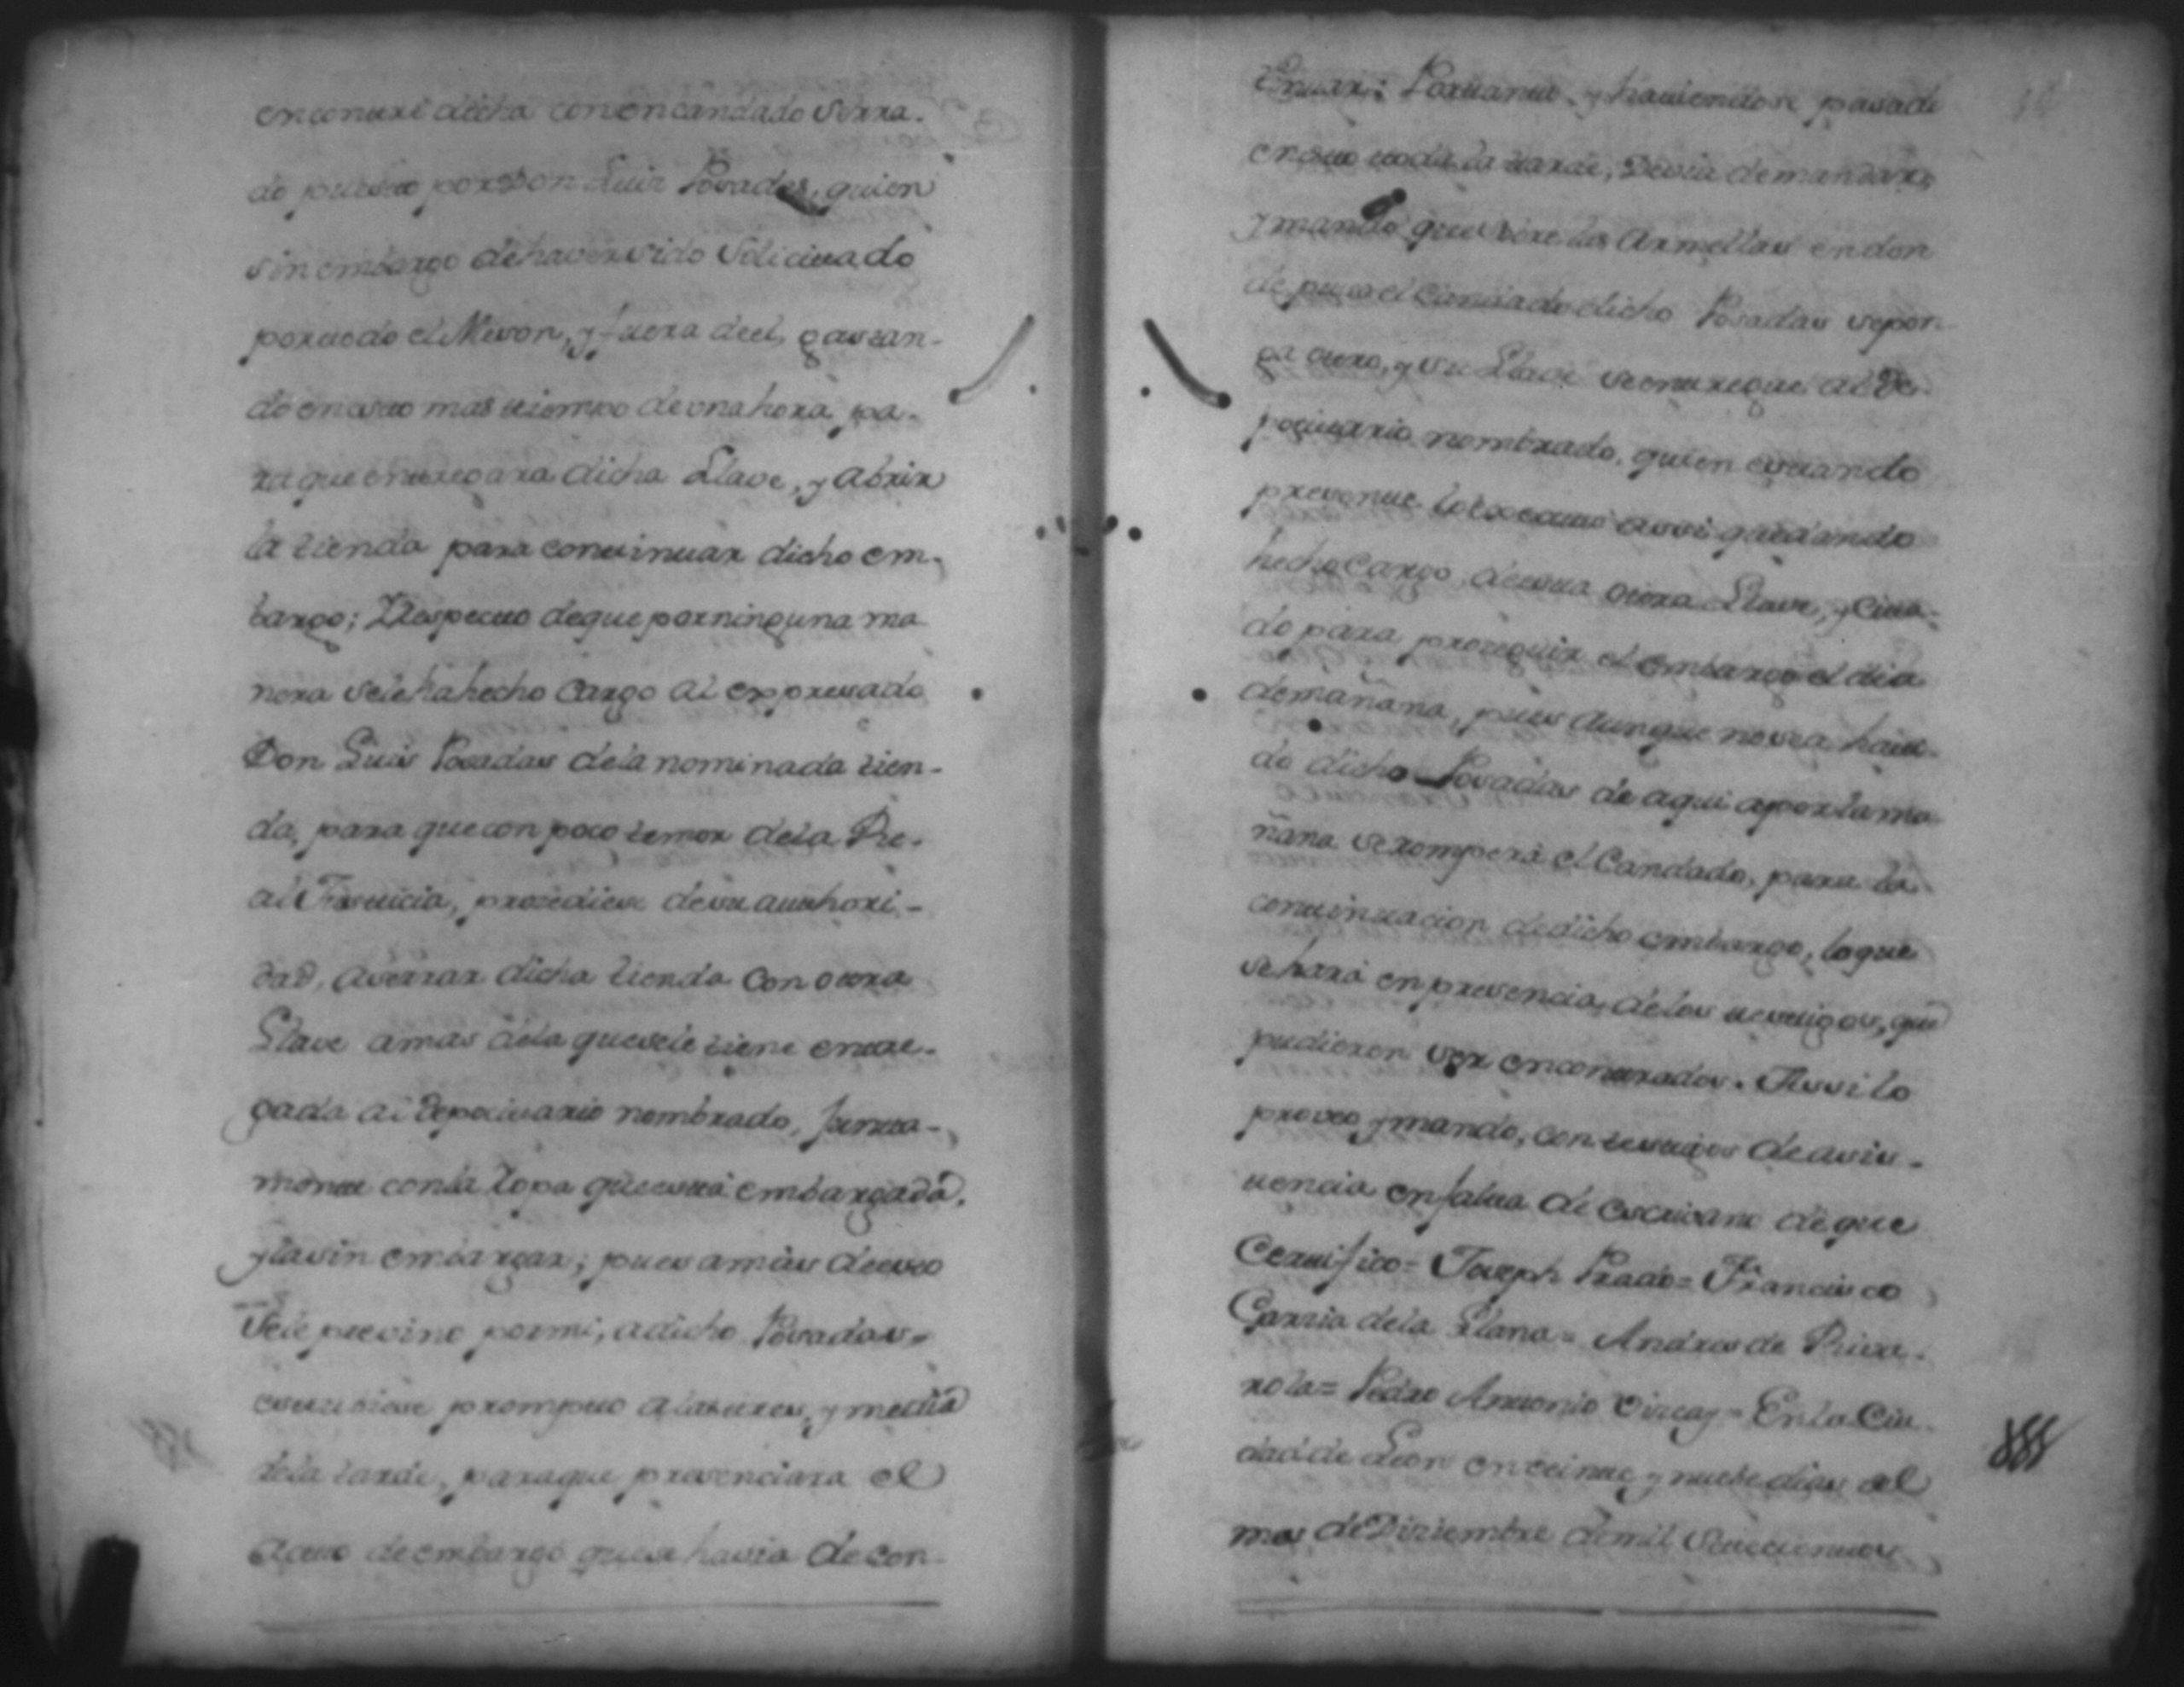 encontre dicha con on candado serra-
do puesto por Don Luis Posadas, quien
sin embargo de haver sido solicitado
por todo el Meson, y fuera de el, gastan-
do en esto mas tiempo de vna hora, pa-
ra que entregara dicha Llave, y abrir
la tienda para continuar dicho em-
bargo; Respecto de que por ninguna ma
nera se le ha hecho cargo al expresado
Don Luis Posadas de la nominada tien-
da, para que con poco temor de la Re-
al Justicia, prosediese de su authori-
dad, a serrar dicha tienda con otra
Llave a mas de la que se le tiene entre-
gada al Depocitario nombrado, junta-
mente con la ropa que está embargada,
y la sin embargar; pues a mas de esto
se le previno por mi, a dicho Posadas,
estubiese prompto a las tres, y media
de la tarde, para que presenciara el
acto de embargo que se havia de con-
tinuar; Por tanto y haviendose pasado
en esto toda la tarde, Devia de mandar,
y mando que sobre las Armellas en don
de puso el Candado dicho Posadas se pon
ga otro, y su Llave se entregue al De-
pocitario nombrado, quien estando
presente lo executó assi quedando
hecho cargo, de esta otra Llave, y cita-
do para proseguir el embargo el dia
de mañana, pues aunque no sea havi-
do dicho Posadas de aqui a por la ma
ñana se romperà el Candado, para la
continuacion de dicho embargo, lo que
se hará en presencia, de los testigos, que
pudieren ser encontrados. Assi lo
proveo, y mando, con testigos de asis-
tencia en falta de escribano de que
Certifico = Joseph Prado = Francisco
Garzia de la Llana = Andres de Riva-
rola = Pedro Antonio = En la Ciu-
dad de Leon en veinte y nuebe dias del
mes de Diziembre de mil setecientos